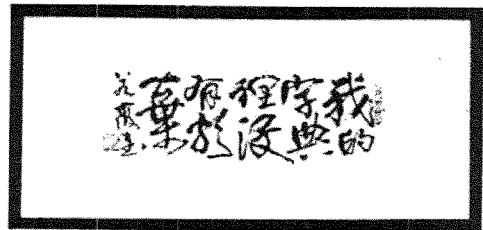 我的
字典
裡沒
有放
棄